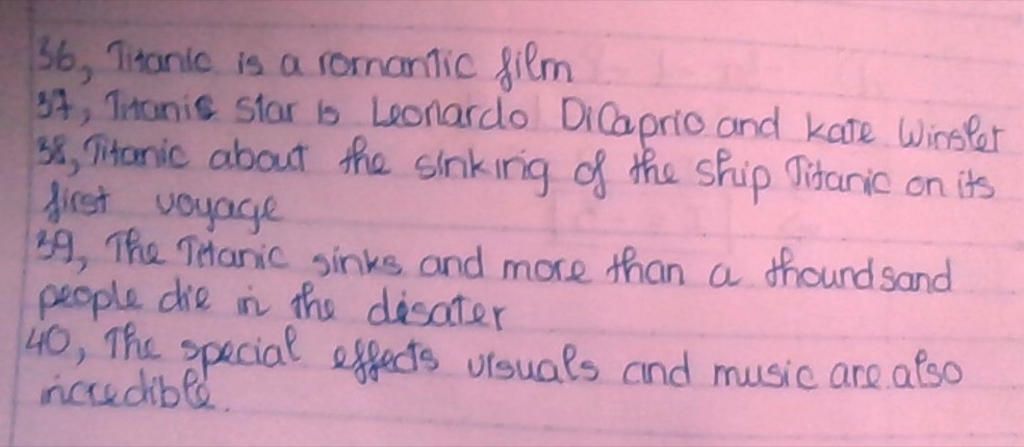 36, Titanic is a romantic film
37, Titanic star is Leonardo DiCaprio and Kate Winsler
38, Titanic about the sinking of the ship Titanic on its
first voyage
39, The Titanic sinks and more than a thoundsand
people die in the disater
40, The special effects visuals and music are also
incredible.